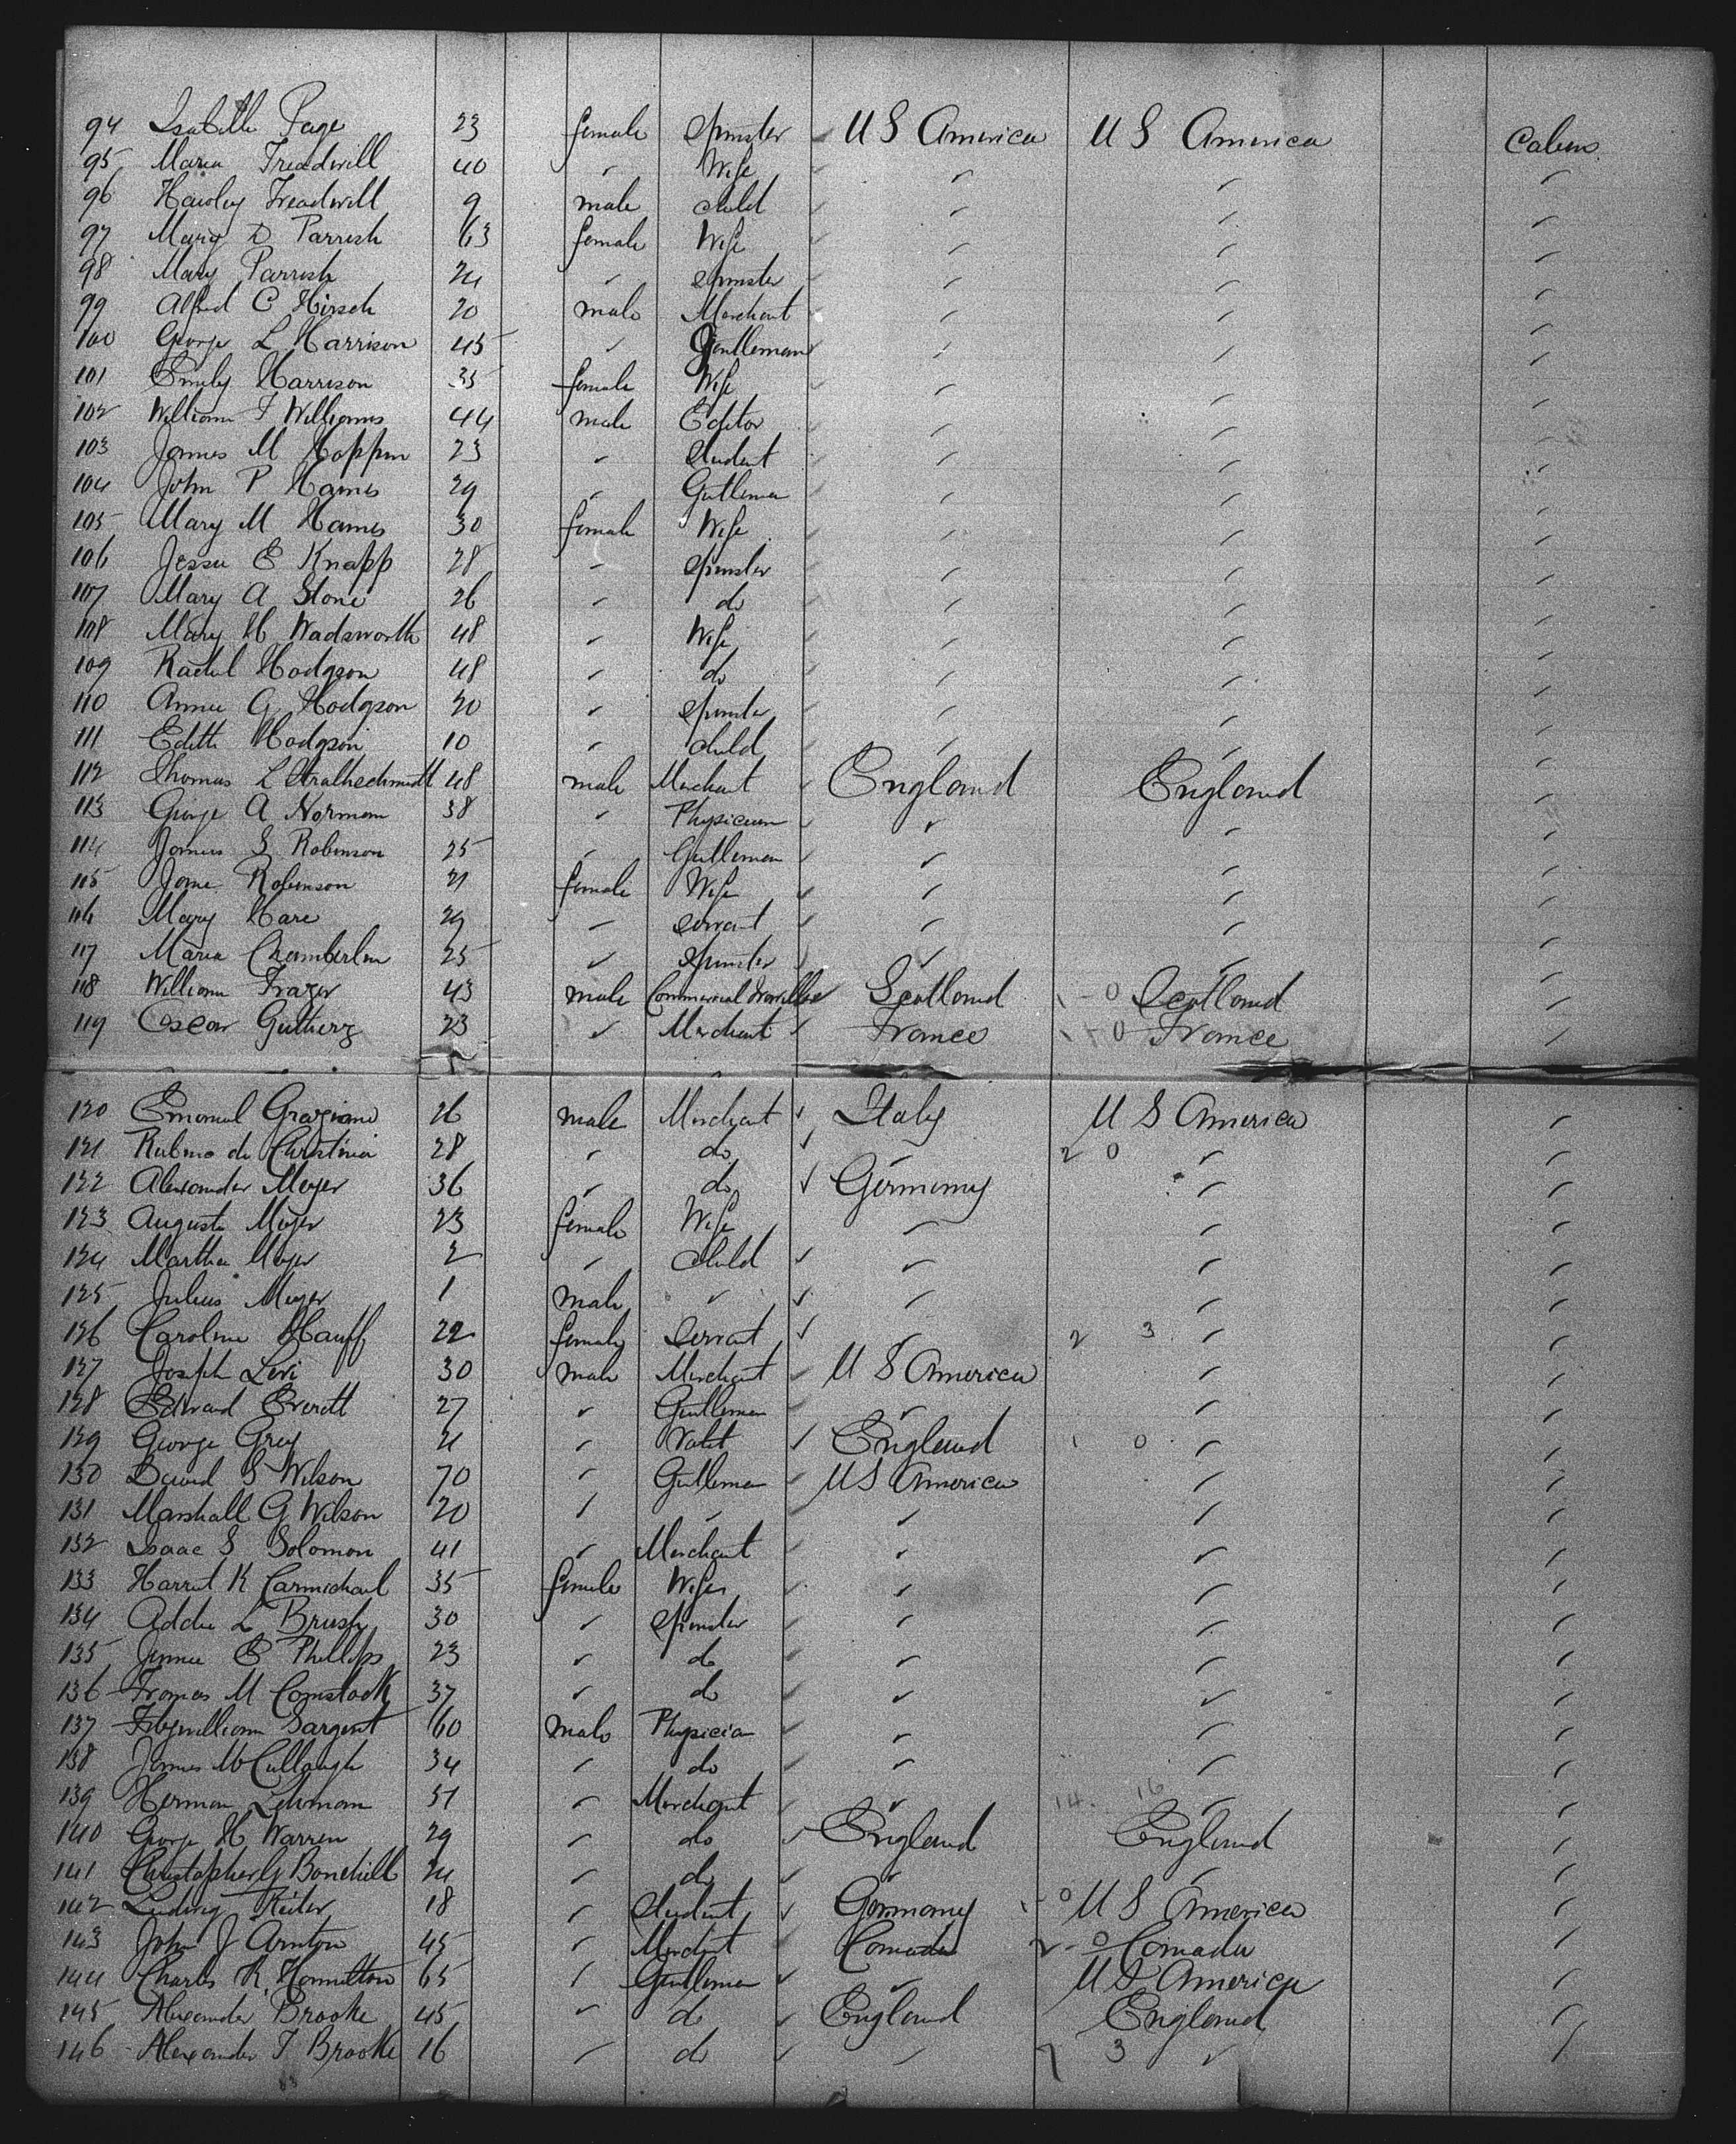 94 Isabella Page 23 female Spinster U S America U S America Cabin
95 Maria Treadwell 40 " Wife " " "
96 Hawley Treadwell 9 male child " " "
97 Mary D Parrish 63 female Wife " " "
98 Mary Parrish 24 " Spinster " " "
99 Alfred C Hirsch 20 male Merchant " " "
100 George L Harrison 45 " Gentleman " " "
101 Emily Harrison 35 female Wife " " "
102 William F Williams 44 male Editor " " "
103 James M Hoppin 23 " Student " " "
104 John P Hames 29 " Gentleman " " "
105 Mary M Hames 30 female Wife " " "
106 Jessie E Knapp 28 " Spinster " " "
107 Mary A Stone 26 " do " " "
108 Mary H Wadsworth 48 " Wife " " "
109 Rachel Hodgson 48 " do " " "
110 Annie G Hodgson 20 " Spinster " " "
111 Edith Hodgson 10 " child " " "
112 Thomas L 48 male Merchant England England "
113 George A Norman 38 " Physician " " "
114 James S Robinson 25 " Gentleman " " "
115 Jane Robinson 21 female Wife " " "
116 Mary Hare 29 " Servant " " "
117 Maria Chamberlin 25 " Spinster " " "
118 William Frazer 43 male Commercial Traveller Scotland 1 - 0 Scotland "
119 Oscar Gutherz 23 " Merchant France 1 - 0 France "
120 Emanuel Graziano 26 male Merchant Italy U S America "
121 Rubino de Christina 28 " do " 2 0 " "
122 Alexander Meyer 36 " do Germany " "
123 Augusta Meyer 23 female Wife " " "
124 Martha Meyer 2 " child " " "
125 Julius Meyer 1 male " " " "
126 Caroline Hauff 22 female Servant " 2 3 " "
127 Joseph Levi 30 male Merchant U S America " "
128 Edward Everett 27 " Gentleman " " "
129 George Grey 21 " Valet England 1 0 " "
130 David S Wilson 70 " Gentleman U S America " "
131 Marshall G Wilson 20 " " " " "
132 Isaac S Solomon 41 " Merchant " " "
133 Harriet K Carmichael 35 female Wife " " "
134 Addie L Brush 30 " Spinster " " "
135 Jennie E Phillips 23 " do " " "
136 Frances M Comstock 37 " do " " "
137 Fitzwilliam Sargent 60 male Physician " " "
138 James McCullough 34 " do " " "
139 Herman Lehman 51 " Merchant " 14 16 " "
140 George H Warren 29 " do England England "
141 Christopher G Bonehill 24 " do " " "
142 Ludwig Reiter 18 " Student Germany 1 - 0 U S America "
143 John J Arnton 45 " Merchant Canada 2 - 0 Canada "
144 Charles R Hamilton 65 " Gentleman " U S America "
145 Alexander Brooke 45 " do England England "
146 Alexander T Brooke 16 " do " 1 3 " "